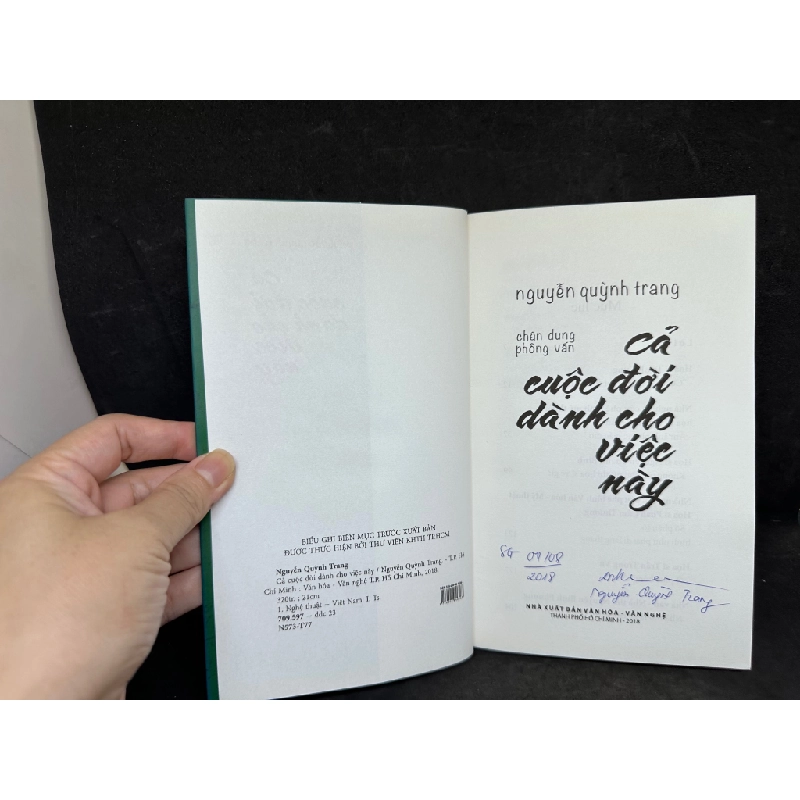 BIỂU GHI BIÊN MỤC TRƯỚC XUẤT BẢN
ĐƯỢC THỰC HIỆN BỞI THƯ VIỆN KHTH TP.HCM
Nguyễn Quỳnh Trang
Cả cuộc đời dành cho việc này / Nguyễn Quỳnh Trang. - T.P. Hồ
Chí Minh : Văn hóa - Văn nghệ T.P. Hồ Chí Minh, 2018
tr. ; 21cm
1. Nghệ thuật -- Việt Nam. I. Ts
709.597 -- ddc 23
N573-T77
nguyễn quỳnh trang
chân dung
phỏng vấn
cả
cuộc đời
dành cho
việc
này
SG 07/08
2018
Nguyễn Quỳnh Trang
NHÀ XUẤT BẢN VĂN HÓA - VĂN NGHỆ
THÀNH PHỐ HỒ CHÍ MINH - 2018